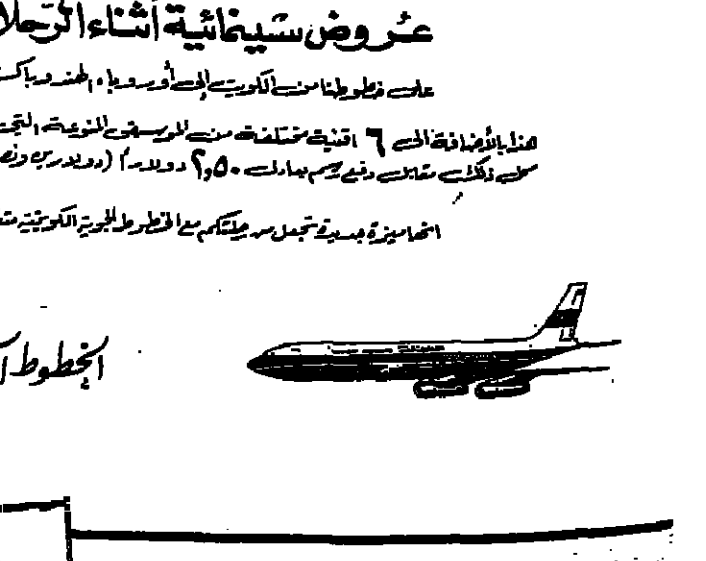 عروض سينمائية أثناء الرحلا
على خطوطنا من الكويت إلى أوروبا، الهند وباكست
هذا بالأضافة الى ٦ اقنية مختلفة من الموسيقى المنوعة، التي
كل ذلك مقابل دفع رسم يعادل ٢,٥٠ دولاراً (دولارين ونص
انها ميزة جديدة تجعل من رحلتكم مع الخطوط الجوية الكويتية مت
الخطوط ا